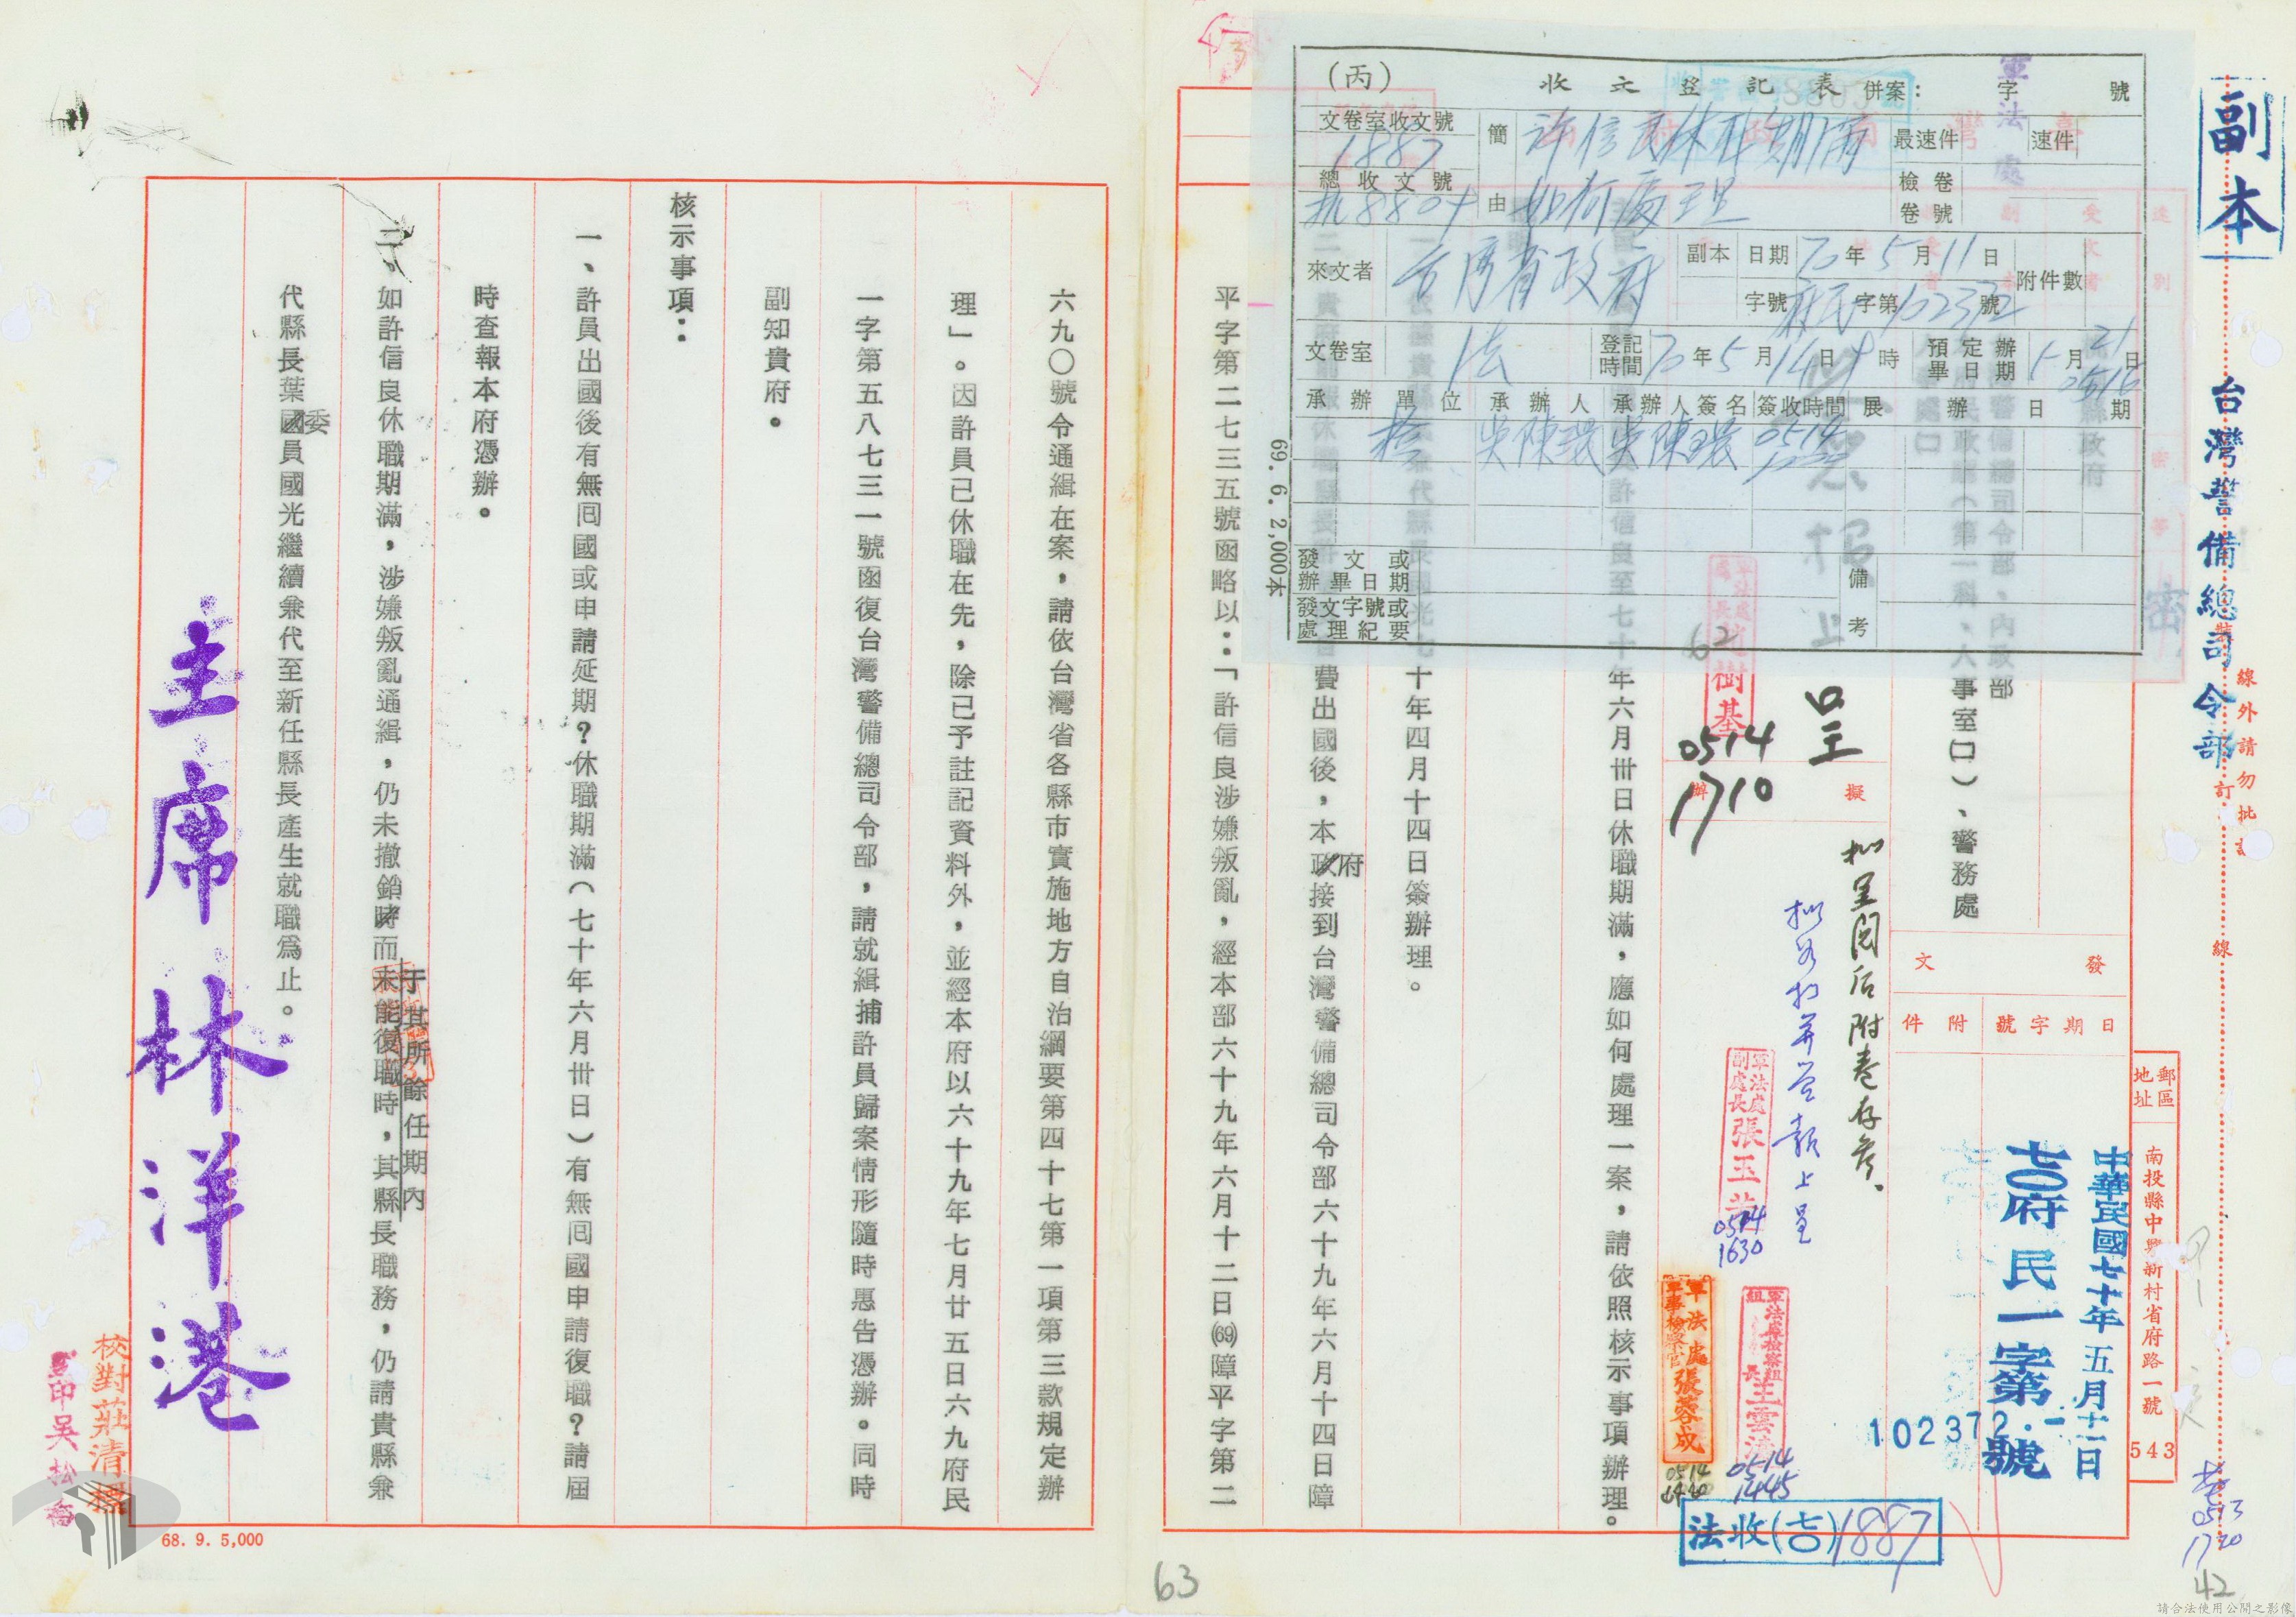 副本
台灣警備總司令部
線外請勿批
裝
訂
線
(丙) 收文登記表 併案: 字 號
文卷室收文號
1887
簡由
許信良休職期滿
如何處理
最速件
速件
總收文號
8804
檢卷
卷號
來文者
台灣省政府
副本
日期 70年5月11日
字號 府民字第102372號
附件數
文卷室
法
登記時間 70年5月14日9時
預定辦畢日期 5月21日
0516
承辦單位
承辦人
承辦人簽名
簽收時間
展辦日期
檢
吳陳環
吳陳環
0514
發文或辦畢日期
發文字號或處理紀要
備考
69. 6. 2,000本
密
呈
擬
辦
62
樹基
0514
1710
擬呈閱后附卷存參、
軍法處副處長張玉
0514
1630
軍法處檢察組組長王雲濤
0514
1445
軍法處軍事檢察官張蓉成
0514
發文
日期字號
附件
郵區地址
南投縣中興新村省府路一號
543
中華民國七十年五月十一日
七〇府民一字第
102372
號
法收(七〇)1887
0513
1720
42
縣政府
警備總司令部、內政部
民政廳(第一科、人事室口)、警務處
許信良至七十年六月卅日休職期滿,應如何處理一案,請依照核示事項辦理。
七十年四月十四日簽辦理。
費出國後,本政府接到台灣警備總司令部六十九年六月十四日障
平字第二七三五號函略以:「許信良涉嫌叛亂,經本部六十九年六月十二日(69)障平字第二
六九〇號令通緝在案,請依台灣省各縣市實施地方自治綱要第四十七第一項第三款規定辦
理」。因許員已休職在先,除已予註記資料外,並經本府以六十九年七月廿五日六九府民
一字第五八七三一號函復台灣警備總司令部,請就緝捕許員歸案情形隨時惠告憑辦。同時
副知貴府。
核示事項:
一、許員出國後有無回國或申請延期?休職期滿(七十年六月卅日)有無回國申請復職?請屆
時查報本府憑辦。
二、如許信良休職期滿,涉嫌叛亂通緝,仍未撤銷時而未能復職時,其縣長職務,仍請貴縣兼
于其所餘任期內
代縣長葉國員國光繼續兼代至新任縣長產生就職為止。
委
主席林洋港
校對莊清
監印吳松
68. 9. 5,000
63
請合法使用公開之影像